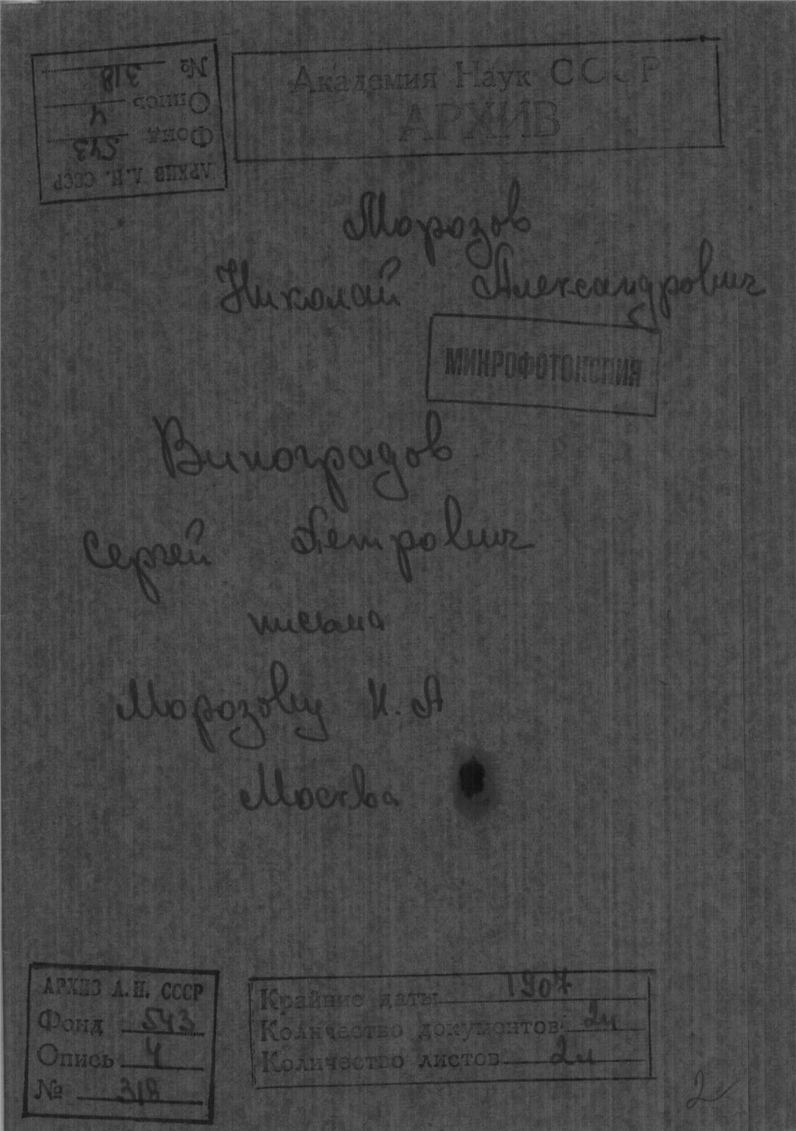 № 318
Опись 4
Фонд 543
АРХИВ А.Н. СССР
Академия Наук СССР
АРХИВ
Морозов
Николай Александрович
МИКРОФОТОКОПИЯ
Виноградов
Сергей Петрович
письма
Морозову Н. А
Москва
АРХИВ А.Н. СССР
Фонд 543
Опись 4
№ 318
Крайние даты 1907
Количество документов: 2
Количество листов 2
2